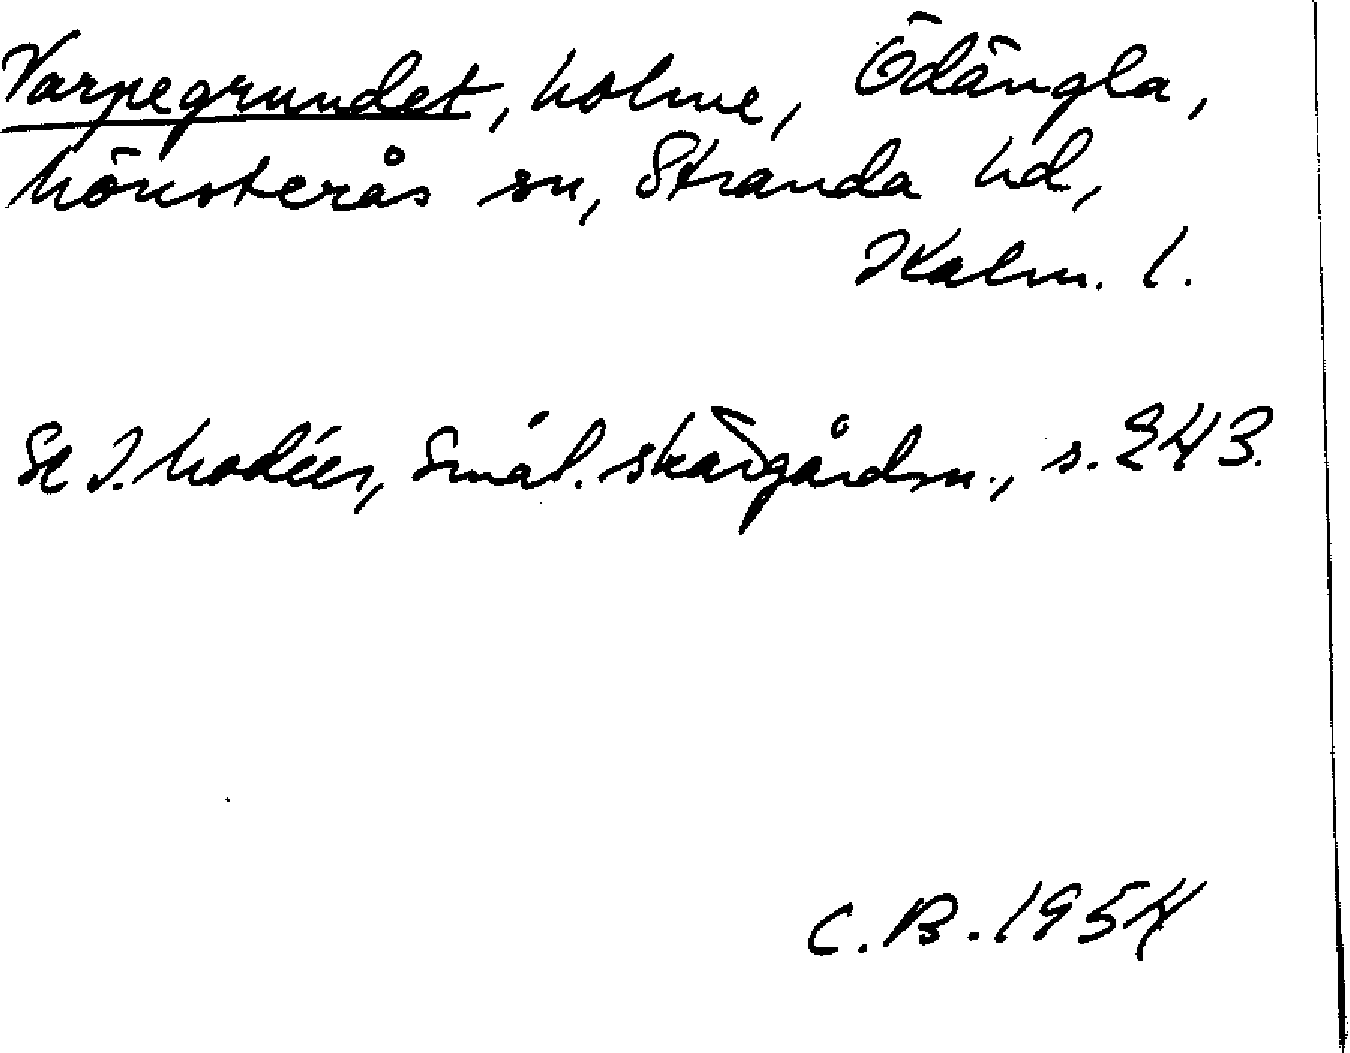 Varpegrundet, holme, Ödängla,
Mönsterås sn, Stranda hd,
Kalm. l.
Se I. Modéer, Smål. skärgårdsn., s. 243.
C. B. 1954